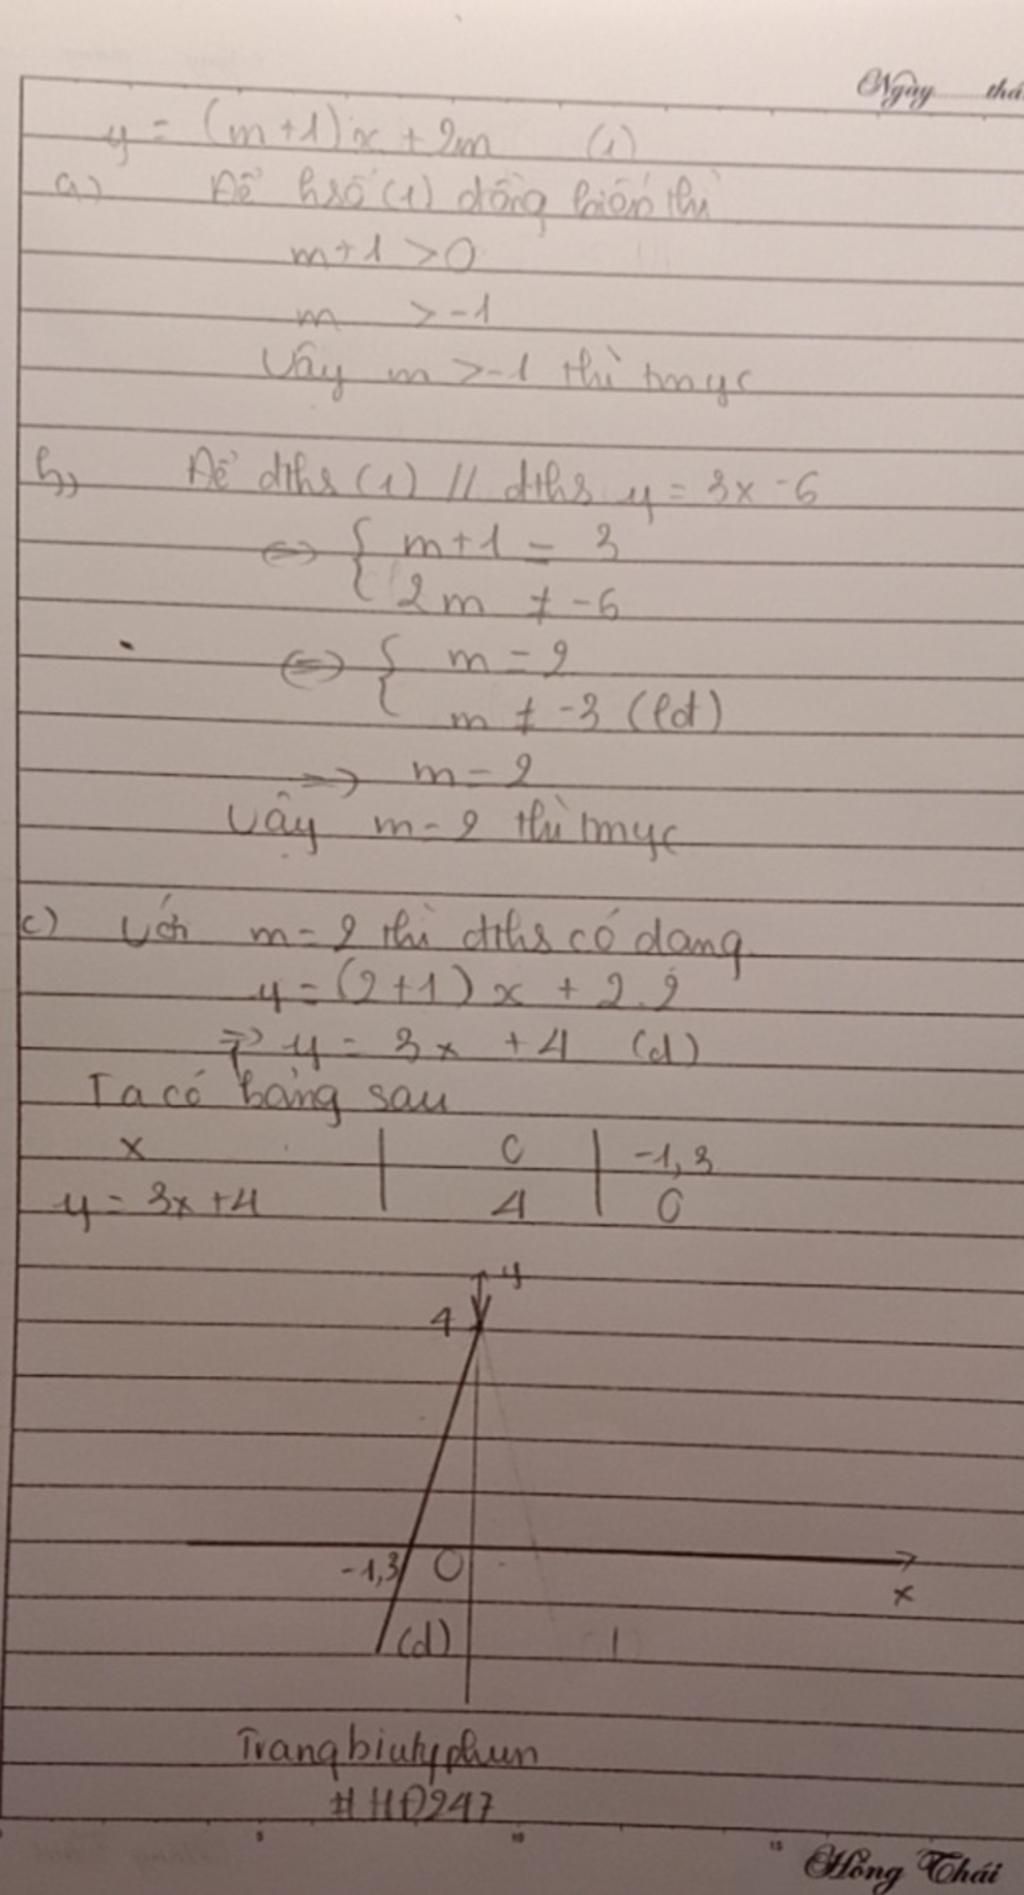 Ngày thá
y = (m+1)x + 2m (1)
a) Để hsố (1) đồng biến thì
m+1 >0
m >-1
Vậy m >-1 thì tmyc
b, Để đths (1) // đths y = 3x -6
<=> { m+1 = 3
2m ≠ -6
<=> { m = 2
m ≠ -3 (lđ)
=> m = 2
Vậy m = 2 thì tmyc
c) Với m = 2 thì đths có dạng
y = (2+1)x + 2.2
=> y = 3x +4 (d)
Ta có bảng sau
x | 0 | -1,3
y = 3x+4 | 4 | 0
y
4
-1,3 O
x
(d)
Trangbiutyphun
#HD247
5 10 15
Hồng Thái